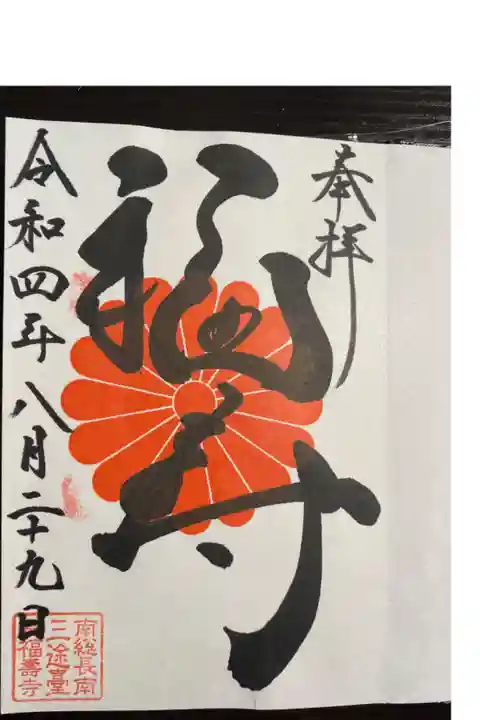 奉拝
福寿
令和四年八月二十九日
南総長南
三途臺
福壽寺